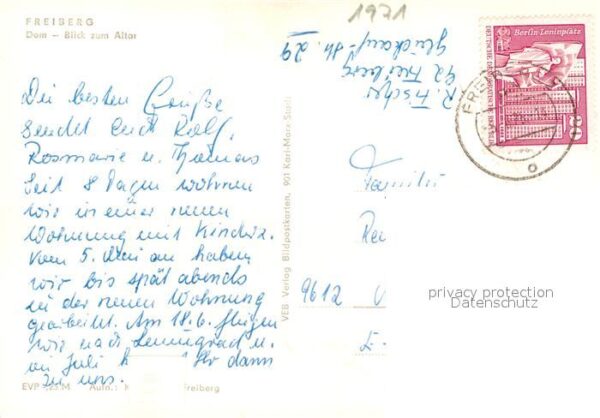 FREIBERG
Dom – Blick zum Altar
1971
Die besten Grüße
sendet Euch Rolf,
Rosmarie u. Thomas
Seit 8 Tagen wohnen
wir in einer neuen
Wohnung mit Kinderz.
Vom 5. Mai an haben
wir bis spät abends
in der neuen Wohnung
gearbeitet. Am 18.6. fliegen
wir nach Leningrad u.
im Juli Ihr dann
zu uns.
R. Fischer
92 Freiberg
Glückauf-Str. 29
VEB Verlag Bildpostkarten, 901 Karl-Marx-Stadt
Berlin-Leninplatz
20
FREIBERG
Familie
9612
privacy protection
Datenschutz
EVP
Freiberg